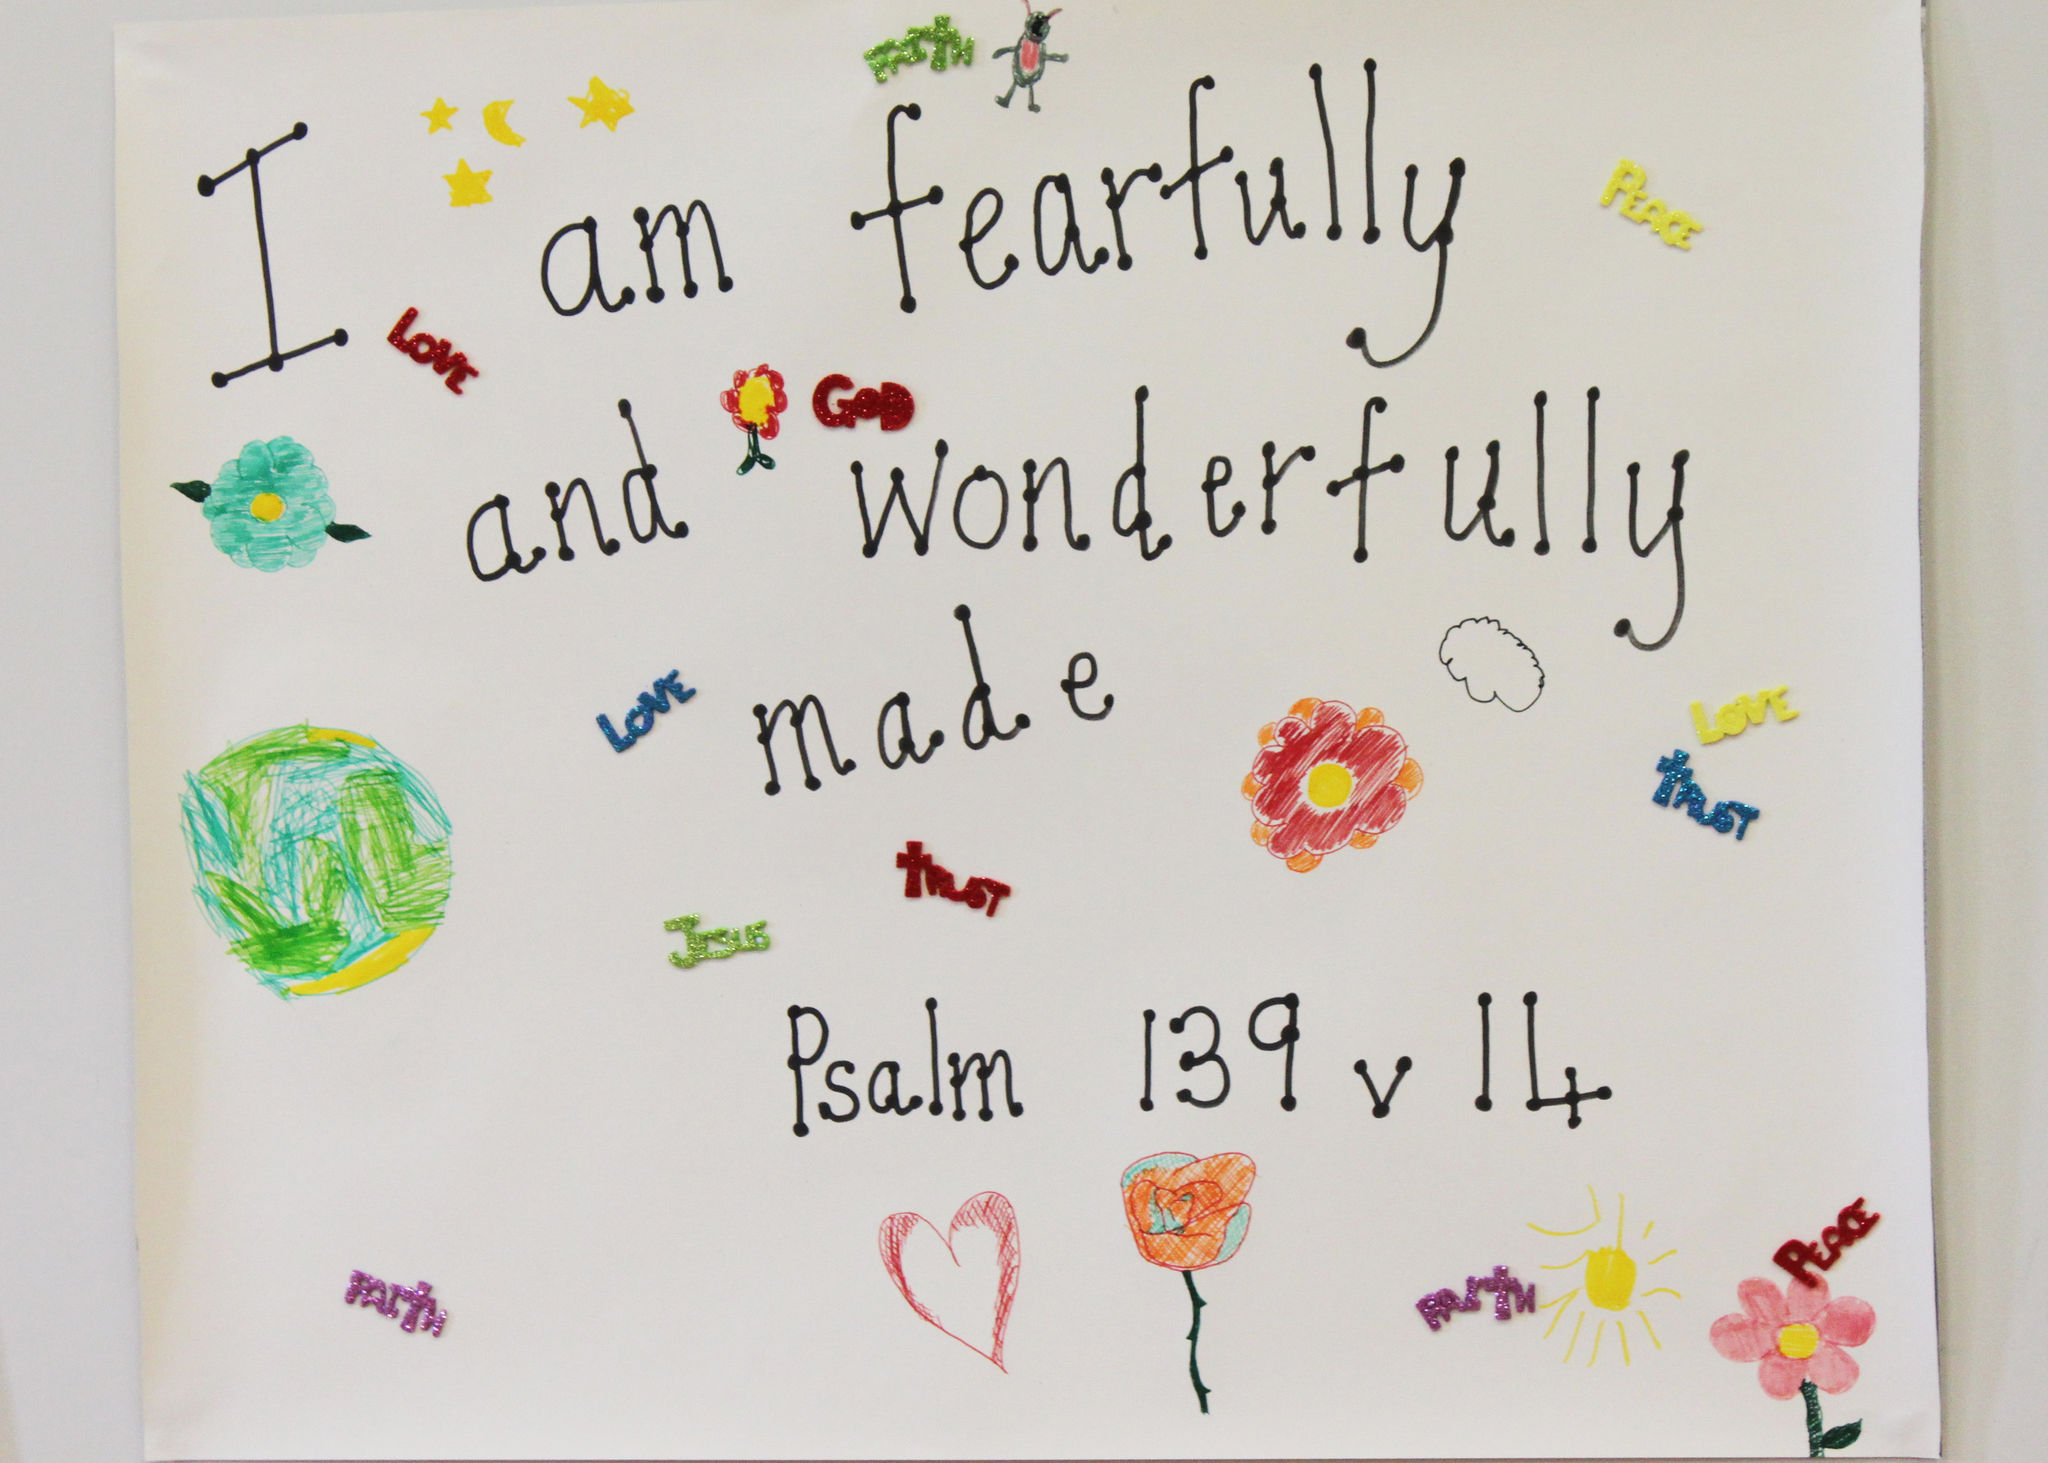 FAITH
I am fearfully
PEACE
LOVE
GOD
and wonderfully
LOVE
made
LOVE
TRUST
TRUST
JESUS
Psalm 139 v 14
FAITH
FAITH
PEACE